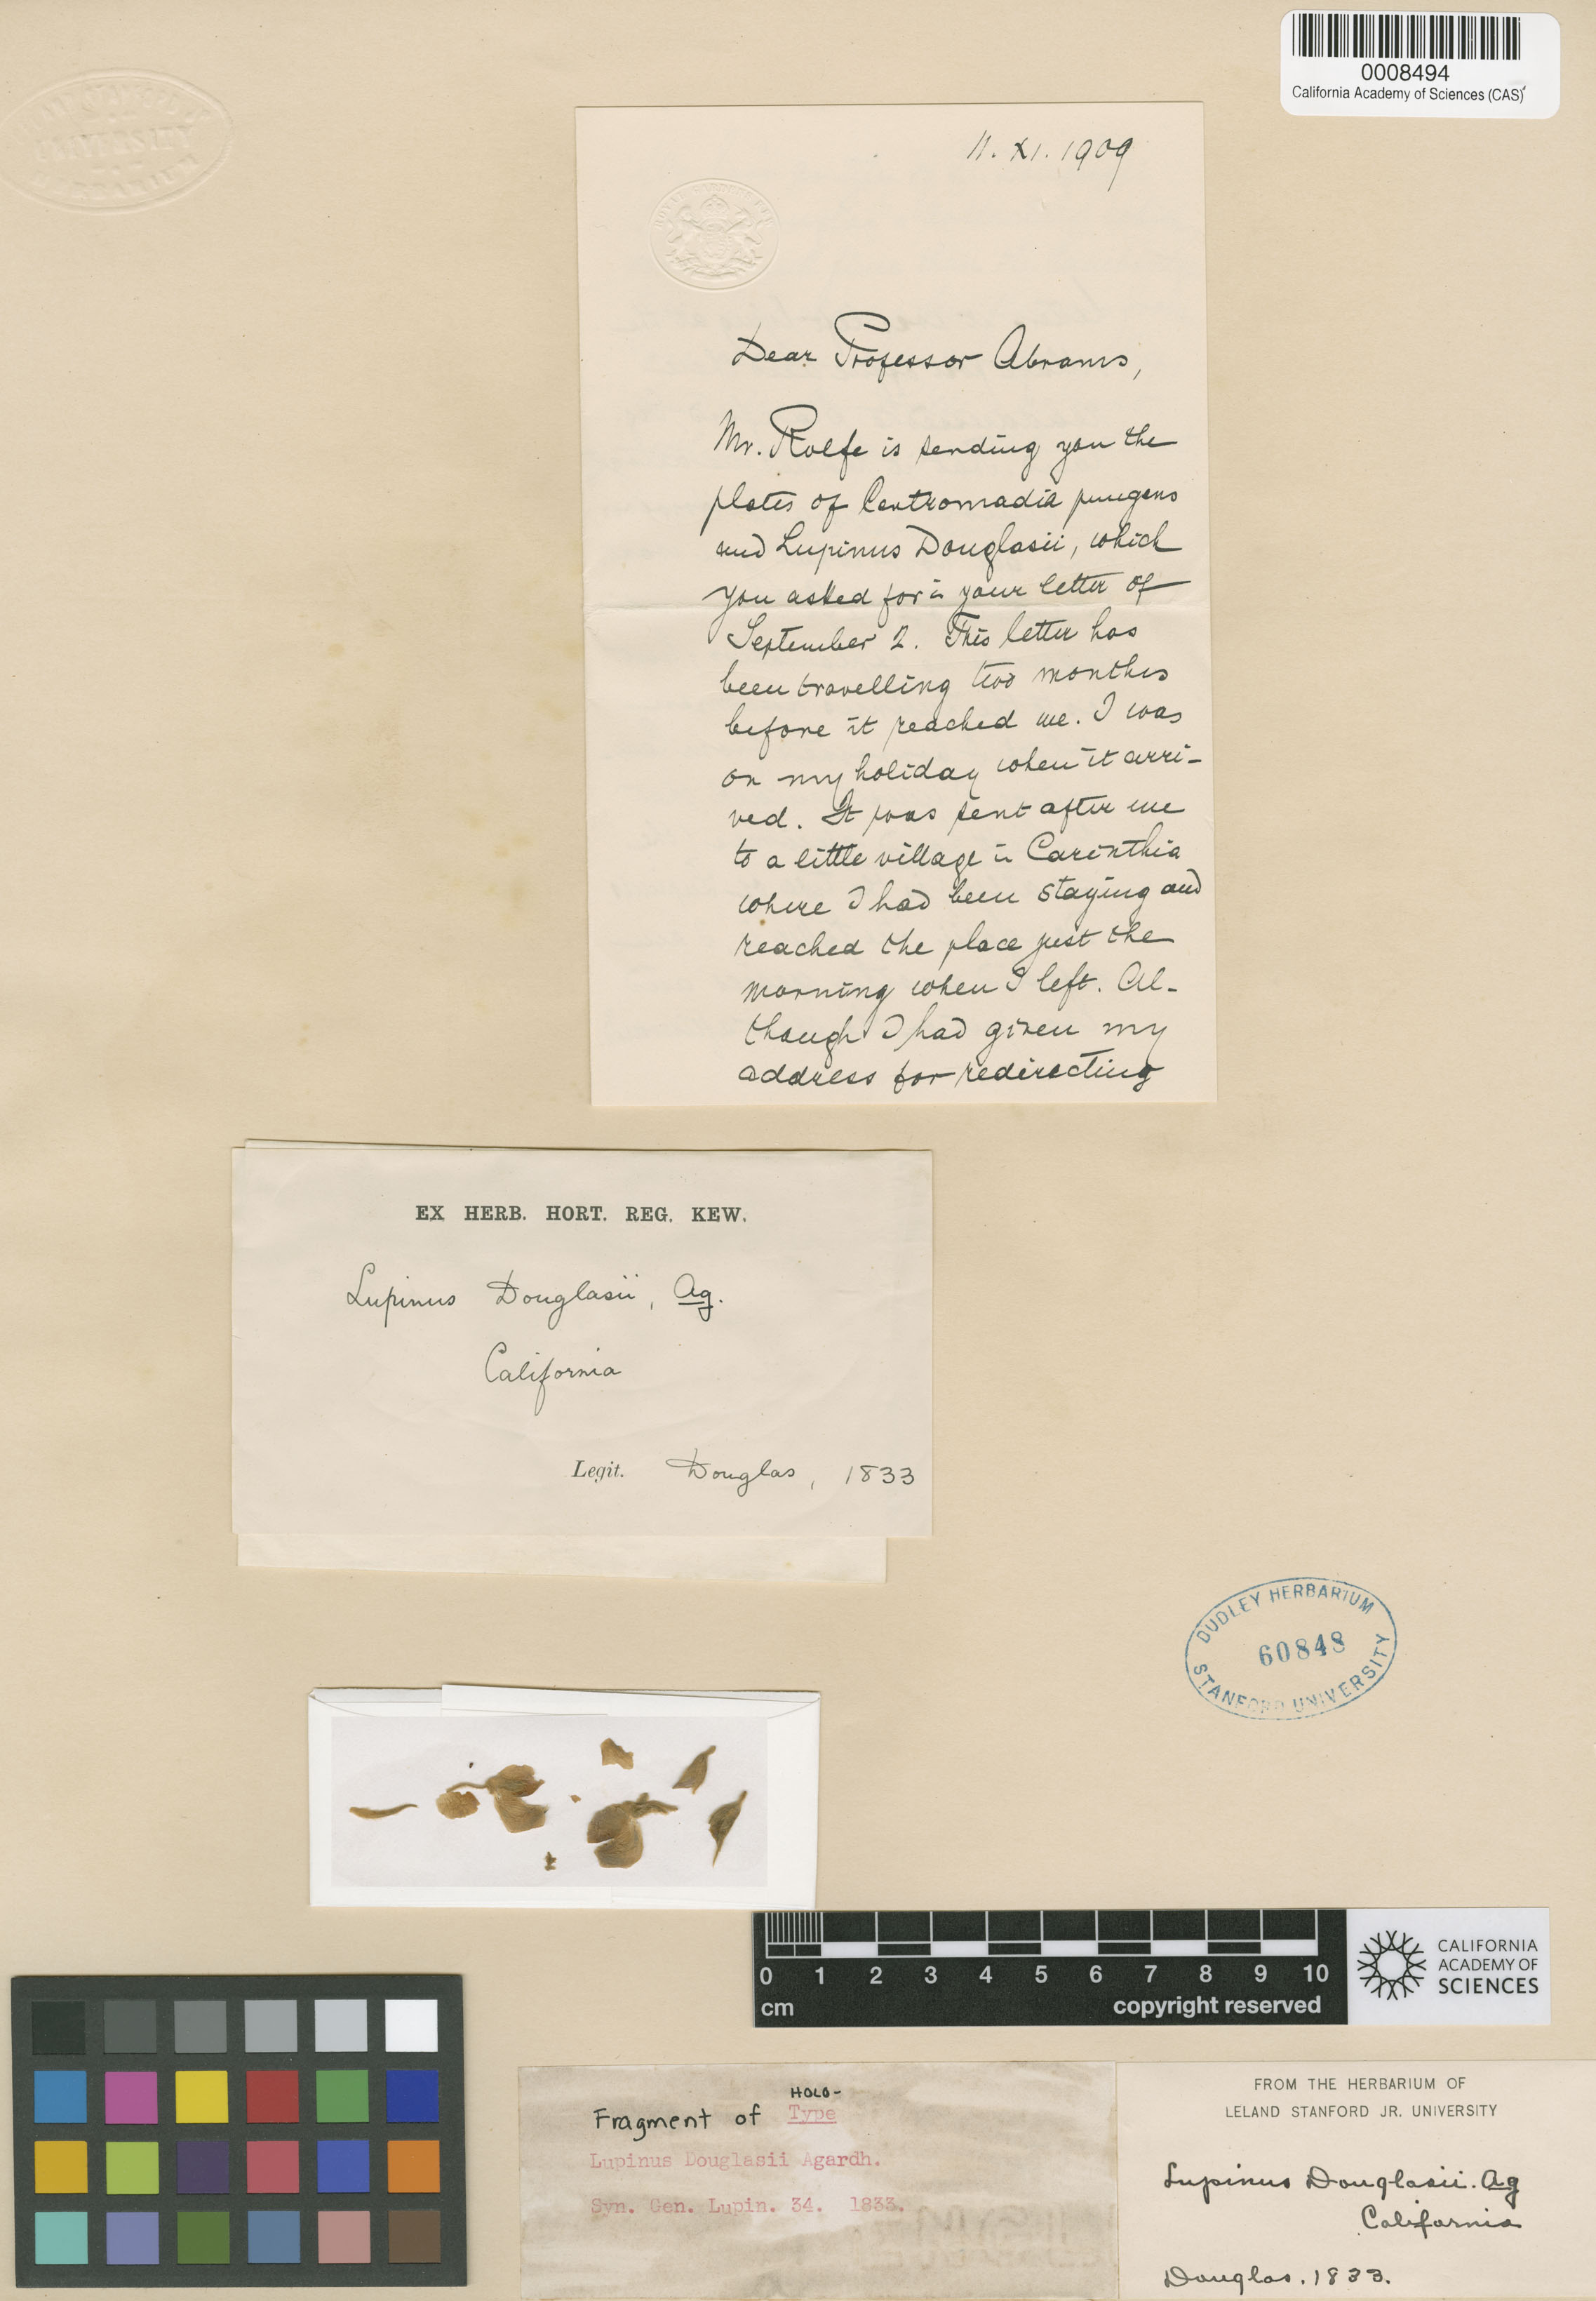 0008494
California Academy of Sciences (CAS)
UNIVERSITY
11. XI. 1909
Dear Professor Abrams,
Mr. Rolfe is sending you the
plates of Centromadia pungens
and Lupinus Douglasii, which
you asked for in your letter of
September 2. This letter has
been travelling two months
before it reached me. I was
on my holiday when it arri-
ved. It was sent after me
to a little village in Carinthia
where I had been staying and
reached the place just the
morning when I left. Al-
though I had given my
address for redirecting
EX HERB. HORT. REG. KEW.
Lupinus Douglasii, Ag.
California
Legit. Douglas, 1833
DUDLEY HERBARIUM
60848
STANFORD UNIVERSITY
0 1 2 3 4 5 6 7 8 9 10
cm copyright reserved
CALIFORNIA
ACADEMY OF
SCIENCES
HOLO-
Fragment of Type
Lupinus Douglasii Agardh.
Syn. Gen. Lupin. 34. 1833.
FROM THE HERBARIUM OF
LELAND STANFORD JR. UNIVERSITY
Lupinus Douglasii. Ag
California
Douglas. 1833.